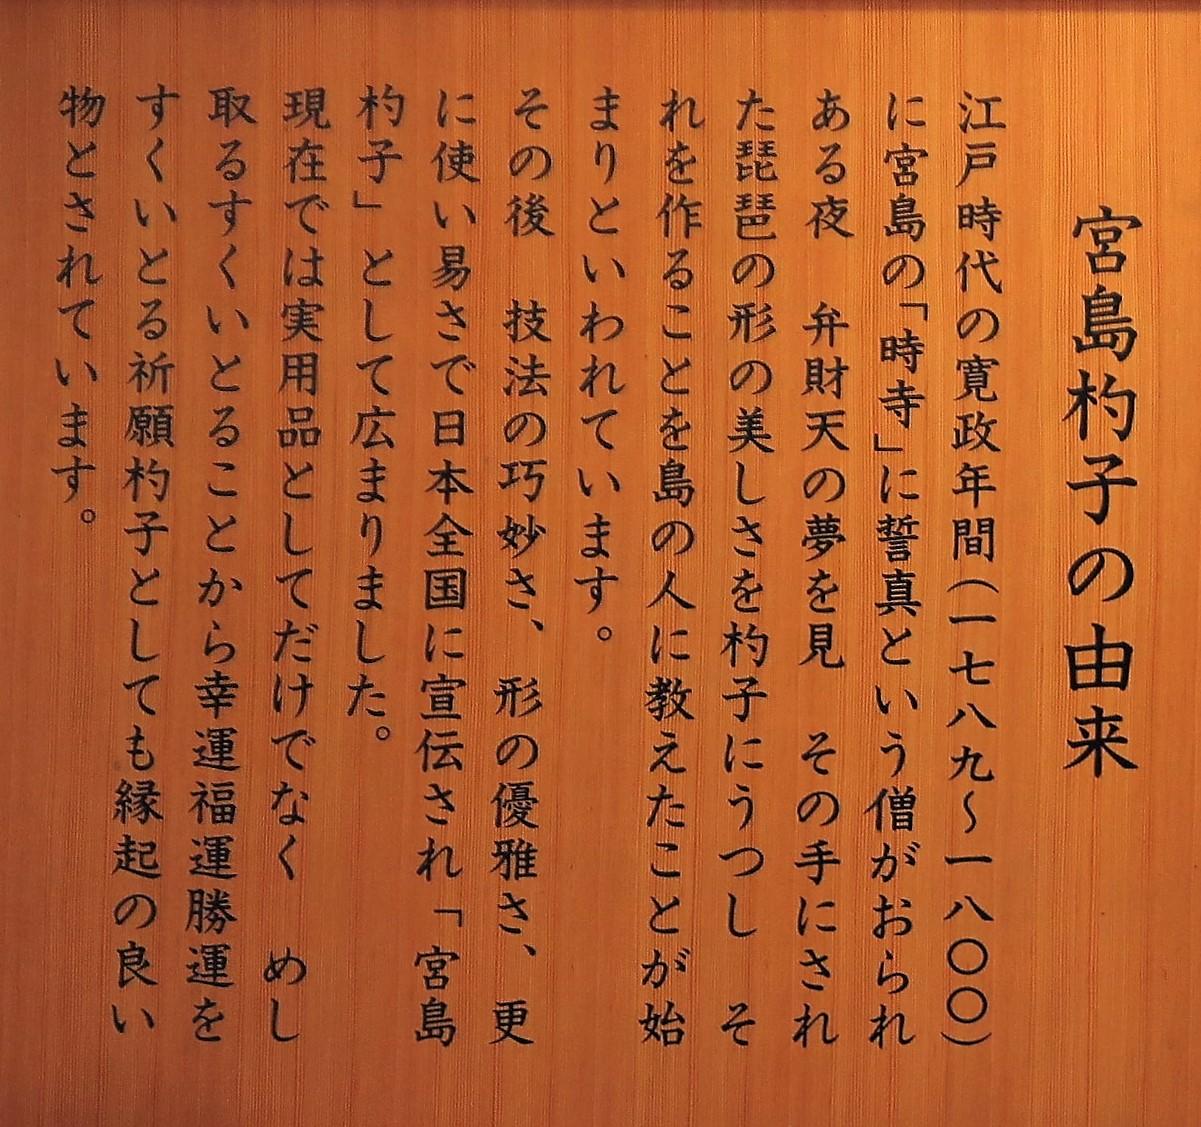 宮島杓子の由来
江戸時代の寛政年間(一七八九～一八〇〇)
に宮島の「時寺」に誓真という僧がおられ
ある夜　弁財天の夢を見　その手にされ
た琵琶の形の美しさを杓子にうつし　そ
れを作ることを島の人に教えたことが始
まりといわれています。
その後　技法の巧妙さ、形の優雅さ、更
に使い易さで日本全国に宣伝され「宮島
杓子」として広まりました。
現在では実用品としてだけでなく　めし
取るすくいとることから幸運福運勝運を
すくいとる祈願杓子としても縁起の良い
物とされています。